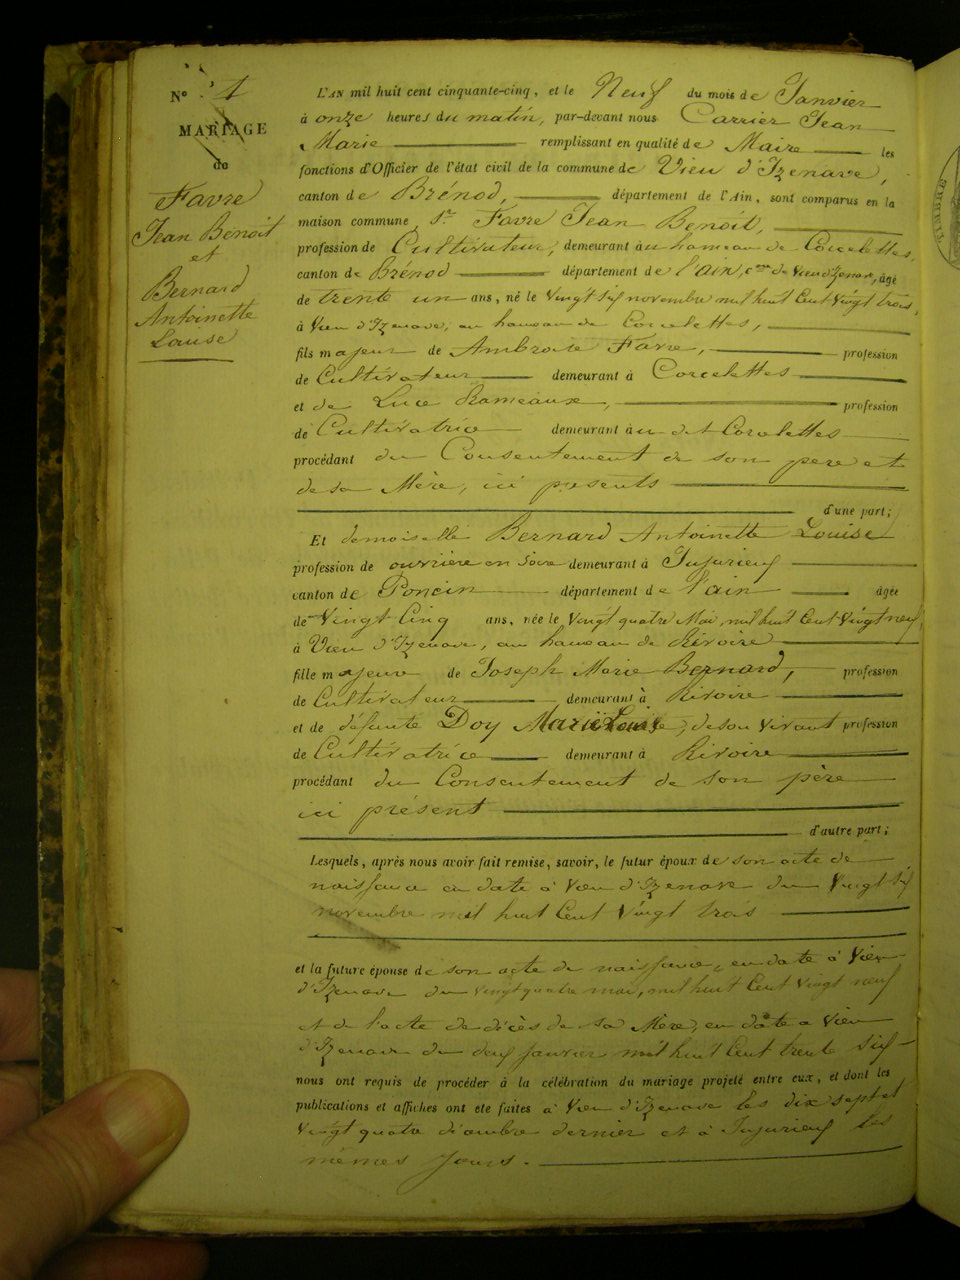 N° 1
MARIAGE
de
Favre
Jean Benoit
et
Bernard
Antoinette
Louise
L'AN mil huit cent cinquante-cinq, et le Neuf du mois de Janvier
à onze heures du matin, par-devant nous Carrier Jean
Marie remplissant en qualité de Maire les
fonctions d'Officier de l'état civil de la commune de Vieu d'Izenave,
canton de Brénod, département de l'Ain, sont comparus en la
maison commune, Sr Favre Jean Benoit,
profession de Cultivateur, demeurant au hameau de Corcelettes,
canton de Brénod département de l'ain, cne de Vieu d'Izenave, âgé
de trente un ans, né le Vingt six novembre mil huit Cent Vingt trois,
à Vieu d'Izenave, au hameau de Corcelettes,
fils majeur de Ambroise Favre, profession
de Cultivateur demeurant à Corcelettes
et de Luce Rameaux, profession
de Cultivatrice demeurant au dt Corcelettes
procédant du Consentement de son pere et
de sa Mère, ici présents
d'une part;
Et demoiselle Bernard Antoinette Louise
profession de ouvrière en Soie demeurant à Jujurieux
canton de Poncin département de l'ain âgée
de Vingt Cinq ans, née le Vingt quatre Mai, mil huit Cent Vingt neuf,
à Vieu d'Izenave, au hameau de Rivoire
fille majeure de Joseph Marie Bernard, profession
de Cultivateur demeurant à Rivoire
et de défunte Doy Marie Louise, de son Vivant profession
de Cultivatrice demeurant à Rivoire
procédant du Consentement de son père
ici présent
d'autre part;
Lesquels, après nous avoir fait remise, savoir, le futur époux de son acte de
naissance en date à Vieu d'Izenave du Vingt six
novembre mil huit Cent Vingt trois
et la future épouse de son acte de naissance, en date à Vieu
d'Izenave du vingt quatre mai, mil huit Cent Vingt neuf
et de l'acte de décès de sa Mère, en date a Vieu
d'Izenave du deux janvier mil huit Cent trente six
nous ont requis de procéder à la célébration du mariage projeté entre eux, et dont les
publications et affiches ont été faites à Vieu d'Izenave les dix sept et
Vingt quatre décembre dernier et à Jujurieux les
mêmes jours.
TIMBRE